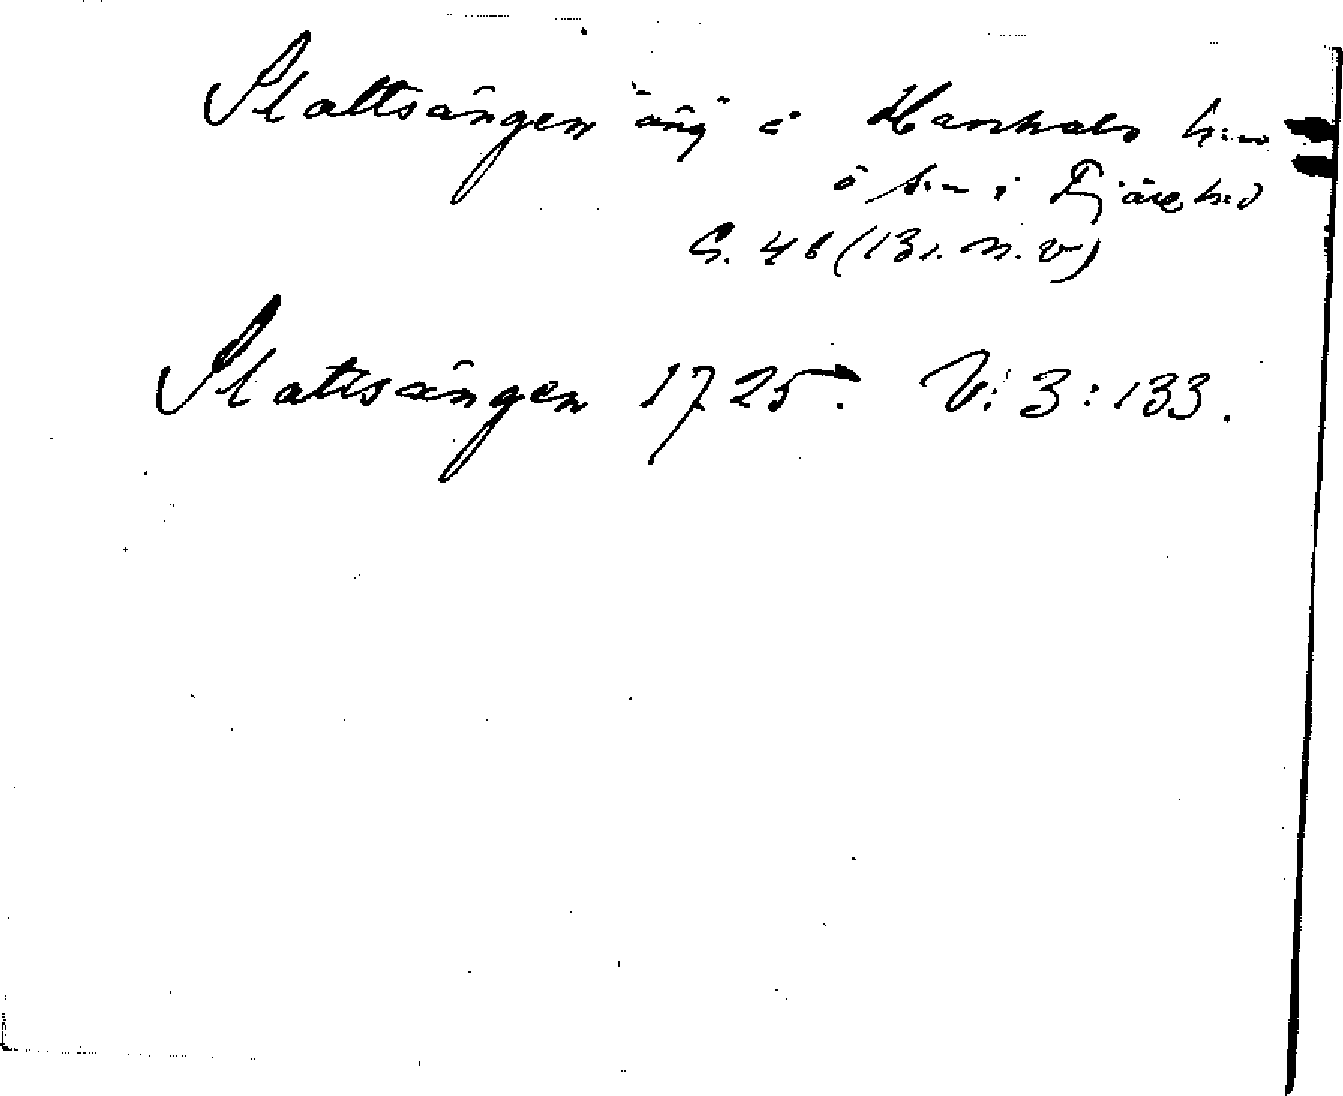 Slattsängen äng i Hanhals h:n
ö s:n i Fjäre h:d
G. 46 (131. n. v)
Slattsängen 1725. V: 3: 133.